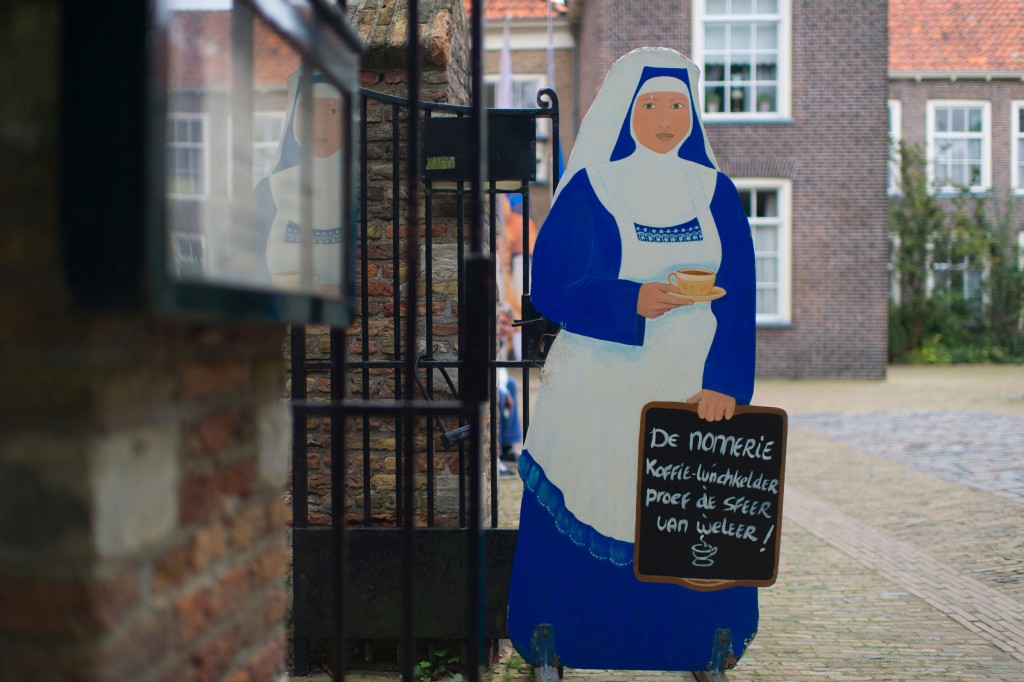 De NONNERIE
KOFFIE-lunchkelder
proef de SFEER
van weleer!